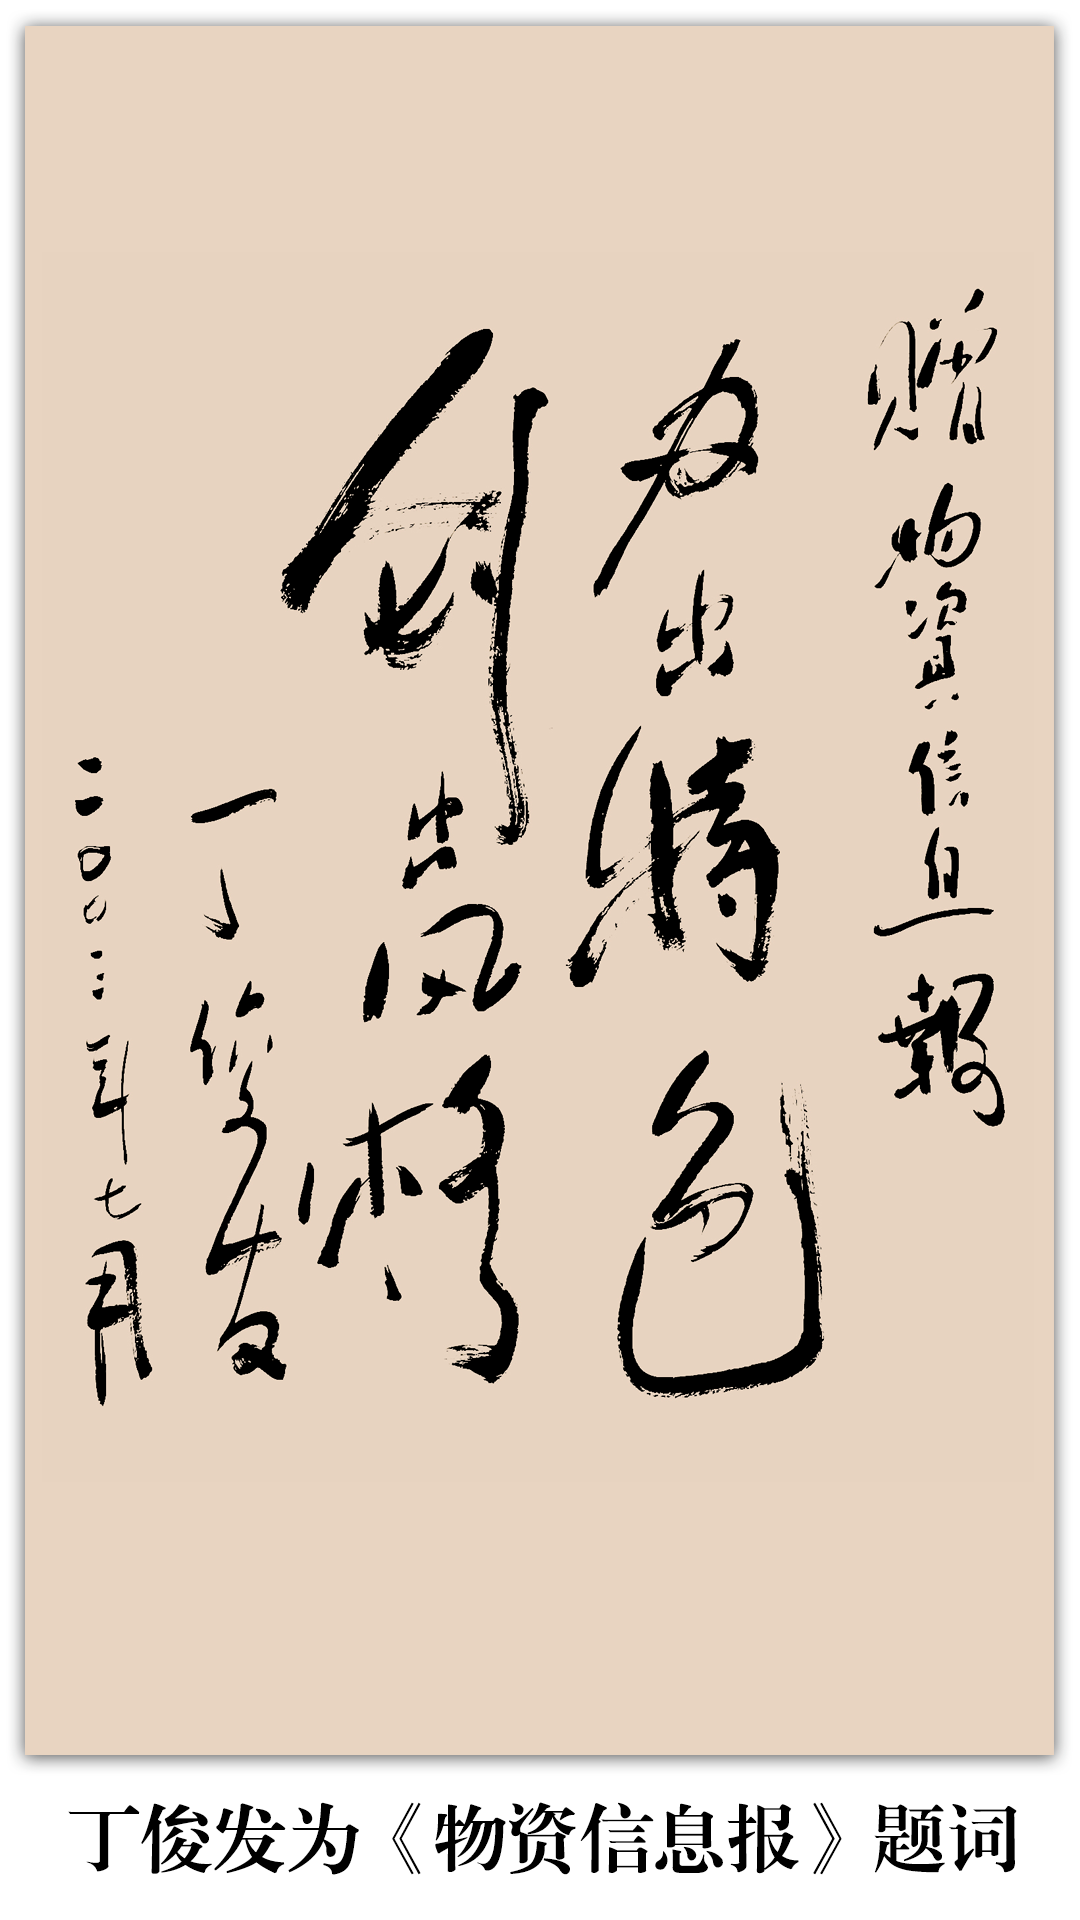 赠 物資信息報
办出特色
创出风格
丁俊发
二〇〇三年七月
丁俊发为《物资信息报》题词